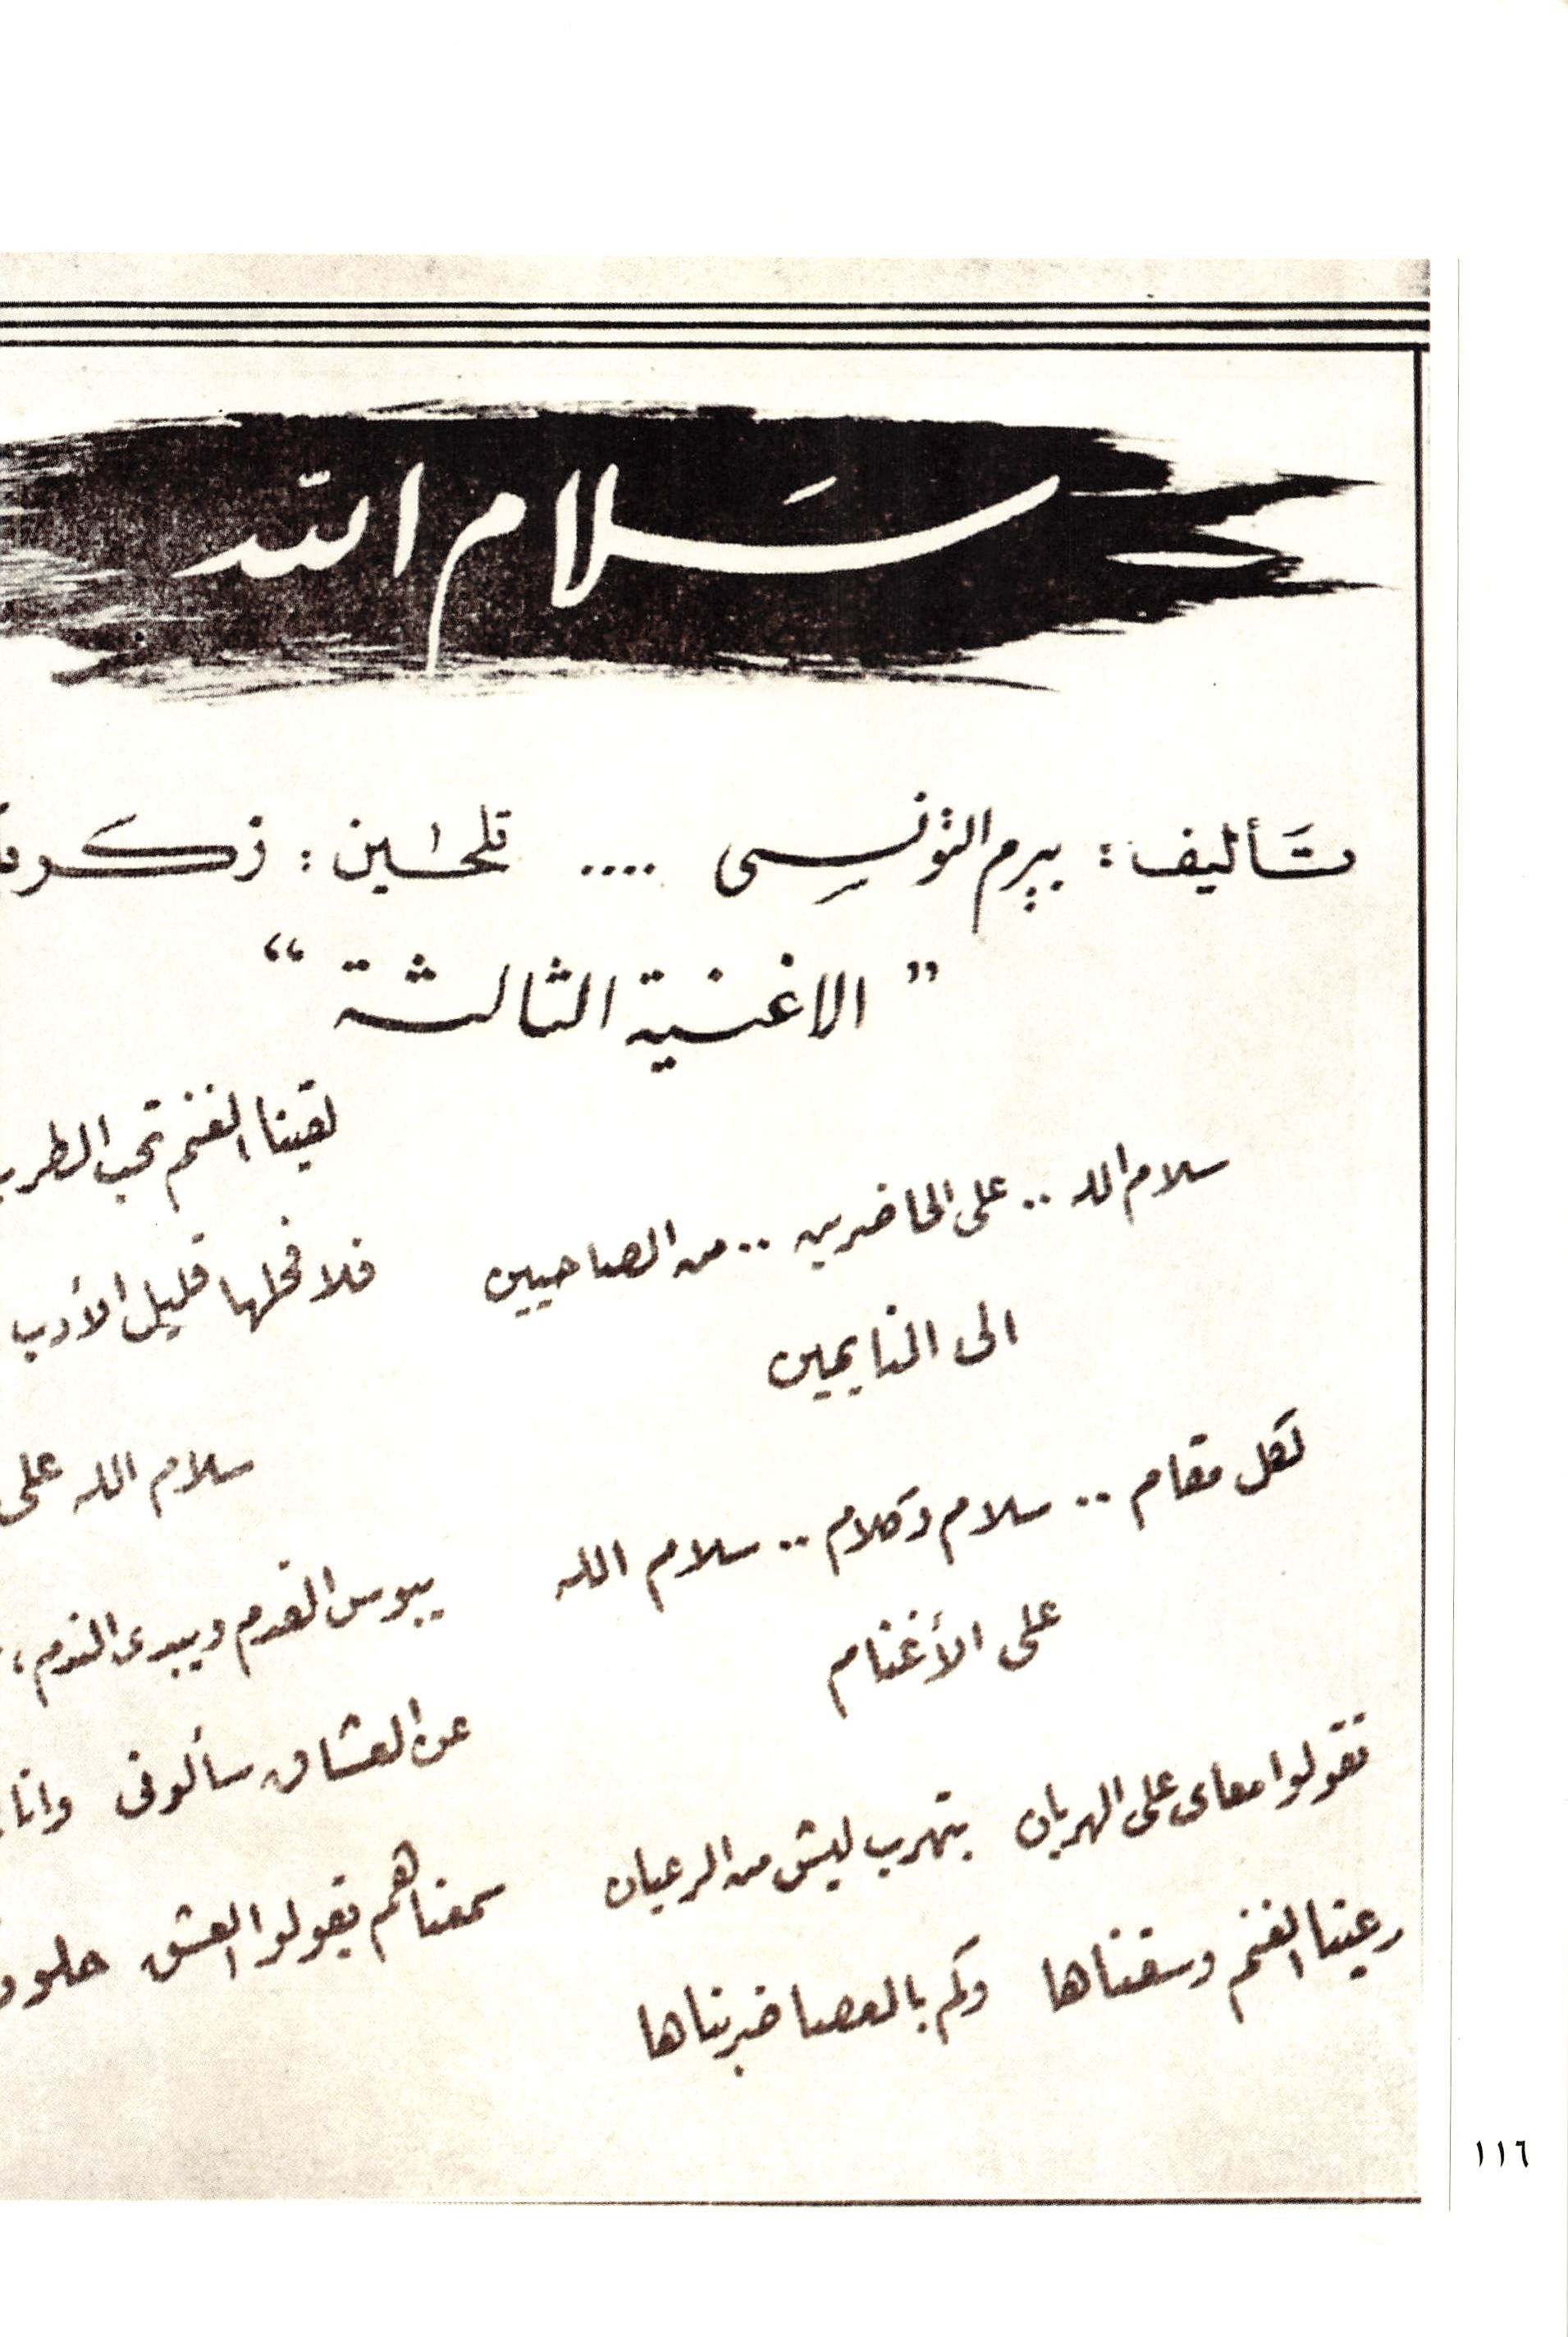 سلام الله
تأليف : بيرم التونسى .... تلحين : زكريا
" الاغنية الثالثة "
سلام الله .. على الحاضرين .. من الصاحيين
الى النايمين
لكل مقام .. سلام وكلام .. سلام الله
على الأغنام
تقولوا معاى على الهربان بتهرب ليش من الرعيان
رعينا الغنم وسقناها وكم بالعصا ضربناها
لقينا الغنم تحب الطرب
فلا فحلها قليل الأدب
سلام الله على
يبوس القدم ويبدى الندم ،
عن العشاق سألونى وانا
سمعناهم يقولوا العشق حلو و
١١٦